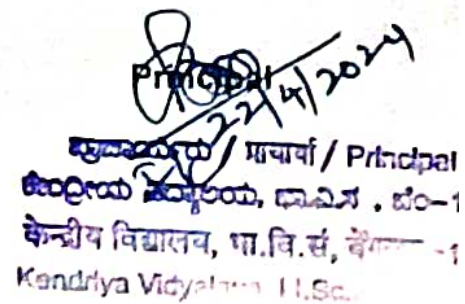 Principal
22/4/2024
ಪ್ರಾಚಾರ್ಯರು / प्राचार्या / Principal
ಕೇಂದ್ರೀಯ ವಿದ್ಯಾಲಯ, ಭಾ.ವಿ.ಸಂ, ಬೆಂ-1
केन्द्रीय विद्यालय, भा.वि.सं, -1
Kendriya I.I.Sc.